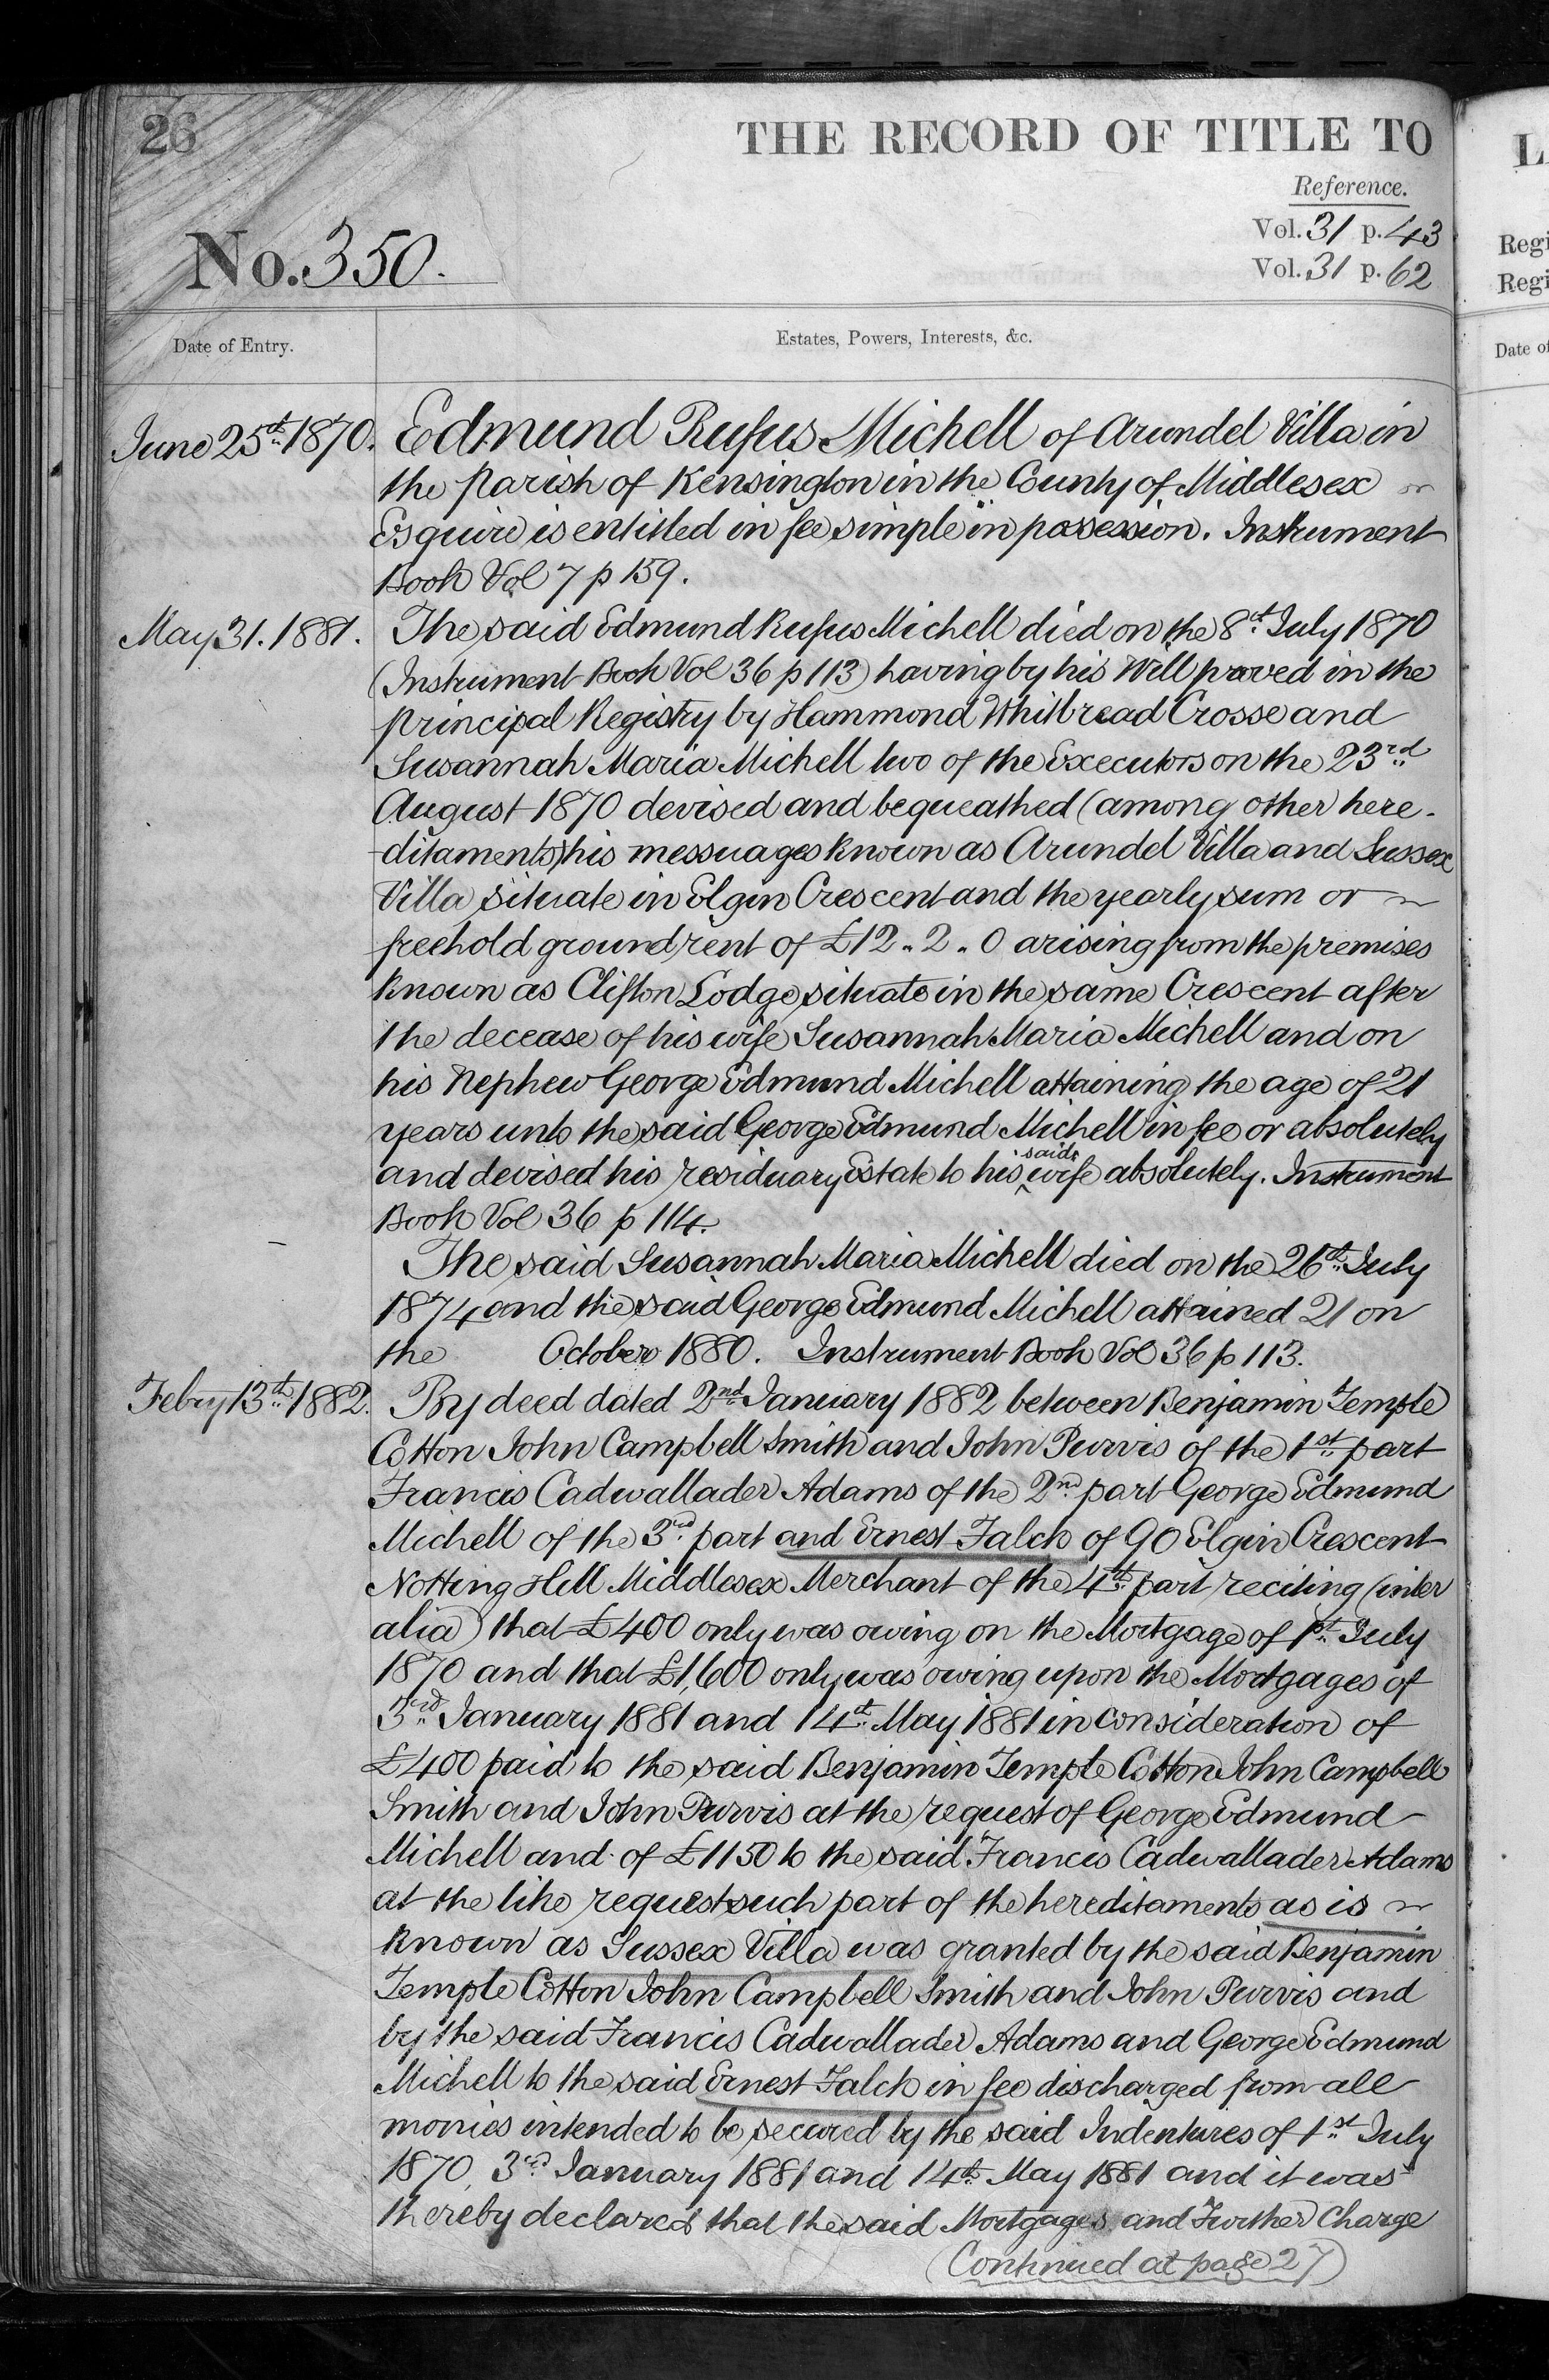 26
THE RECORD OF TITLE TO
Reference.
Vol. 31 p. 43
No. 350.
Vol. 31 p. 62
Date of Entry.
Estates, Powers, Interests, &c.
June 25th 1870. Edmund Rufus Michell of Arundel Villa in
the parish of Kensington in the County of Middlesex
Esquire is entitled in fee simple in possession. Instrument
Book Vol 7 p 159.
May 31. 1881. The said Edmund Rufus Michell died on the 8th July 1870
(Instrument Book Vol 36 p 113) having by his Will proved in the
principal Registry by Hammond Whitbread Crosse and
Susannah Maria Michell two of the Executors on the 23rd
August 1870 devised and bequeathed (among other here-
-ditaments) his messuages known as Arundel Villa and Sussex
Villa situate in Elgin Crescent and the yearly sum or
freehold ground rent of £12 .. 2 .. 0 arising from the premises
known as Clifton Lodge situate in the same Crescent after
the decease of his wife Susannah Maria Michell and on
his Nephew George Edmund Michell attaining the age of 21
years unto the said George Edmund Michell in fee or absolutely
and devised his residuary Estate to his said wife absolutely. Instrument
Book Vol 36 p 114.
The said Susannah Maria Michell died on the 26th July
1874 and the said George Edmund Michell attained 21 on
the October 1880. Instrument Book Vol 36 p 113.
Febry 13th 1882. By deed dated 2nd January 1882 between Benjamin Temple
Cotton John Campbell Smith and John Purvis of the 1st part
Francis Cadwallader Adams of the 2nd part George Edmund
Michell of the 3rd part and Ernest Falck of 90 Elgin Crescent
Notting Hill Middlesex Merchant of the 4th part reciting (inter
alia) that £400 only was owing on the Mortgage of 1st July
1870 and that £1,600 only was owing upon the Mortgages of
3rd January 1881 and 14th May 1881 in consideration of
£400 paid to the said Benjamin Temple Cotton John Campbell
Smith and John Purvis at the request of George Edmund
Michell and of £1150 to the said Francis Cadwallader Adams
at the like request such part of the hereditaments as is
known as Sussex Villa was granted by the said Benjamin
Temple Cotton John Campbell Smith and John Purvis and
by the said Francis Cadwallader Adams and George Edmund
Michell to the said Ernest Falck in fee discharged from all
monies intended to be secured by the said Indentures of 1st July
1870, 3rd January 1881 and 14th May 1881 and it was
thereby declared that the said Mortgages and Further Charge
(Continued at page 27)
Regi
Regi
Date of